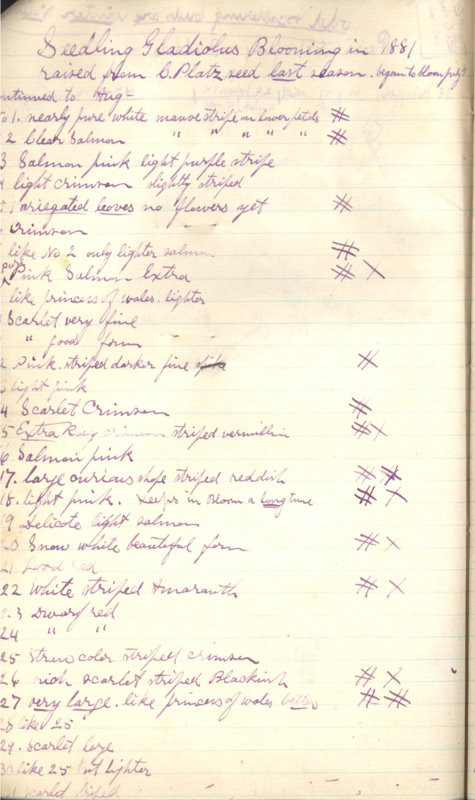 Seedling Gladiolus Blooming in 1881
raised from C. Platz seed last season. began to bloom July
ntinued to Aug
o 1. nearly pure white mauve stripe on lower petals #
2 Clear Salmon " " " " " #
3 Salmon pink light purple stripe
light crimson slightly striped
5 Variegated leaves no flowers yet #
Crimson
like No 2 only lighter salmon #
pure Pink Salmon Extra # X
like princess of wales. lighter
Scarlet very fine
" good form
2 Pink. striped darker fine spike #
3 light pink
4 Scarlet Crimson #
5 Extra Rosy crimson striped vermillin # X
6 Salmon pink
17. large curious shape striped reddish # #
18. light pink. Keeps in Bloom a long time # X
19 Delicate light salmon
20 Snow white beautiful form # X
21 Good red
22 White striped Amaranth # X
23 Dwarf red
24 " "
25 straw color striped crimson
26 rich scarlet striped Blackish # X
27 very large. like princess of wales better # #
28 like 25
29. scarlet large
30 like 25 but lighter
1 scarlet striped